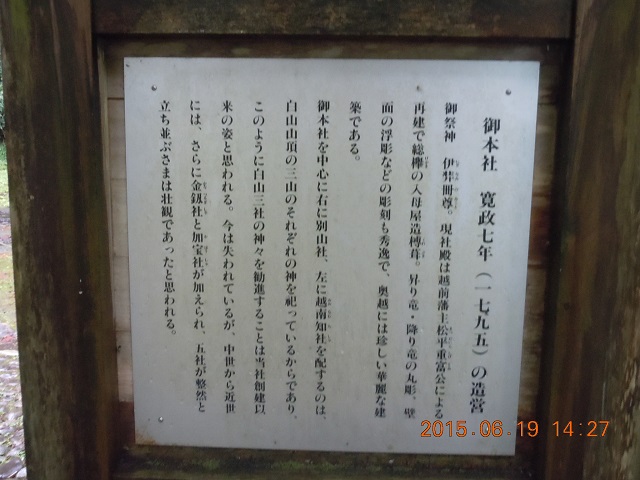 御本社　寛政七年（一七九五）の造営
御祭神　伊弉冊尊。現社殿は越前藩主松平重富公による
再建で総欅の入母屋造榑葺。昇り竜・降り竜の丸彫、壁
面の浮彫などの彫刻も秀逸で、奥越には珍しい華麗な建
築である。
御本社を中心に右に別山社、左に越南知社を配するのは、
白山山頂の三山のそれぞれの神を祀っているからであり、
このように白山三社の神々を勧進することは当社創建以
来の姿と思われる。今は失われているが、中世から近世
には、さらに金釼社と加宝社が加えられ、五社が整然と
立ち並ぶさまは壮観であったと思われる。
2015.06.19 14:27